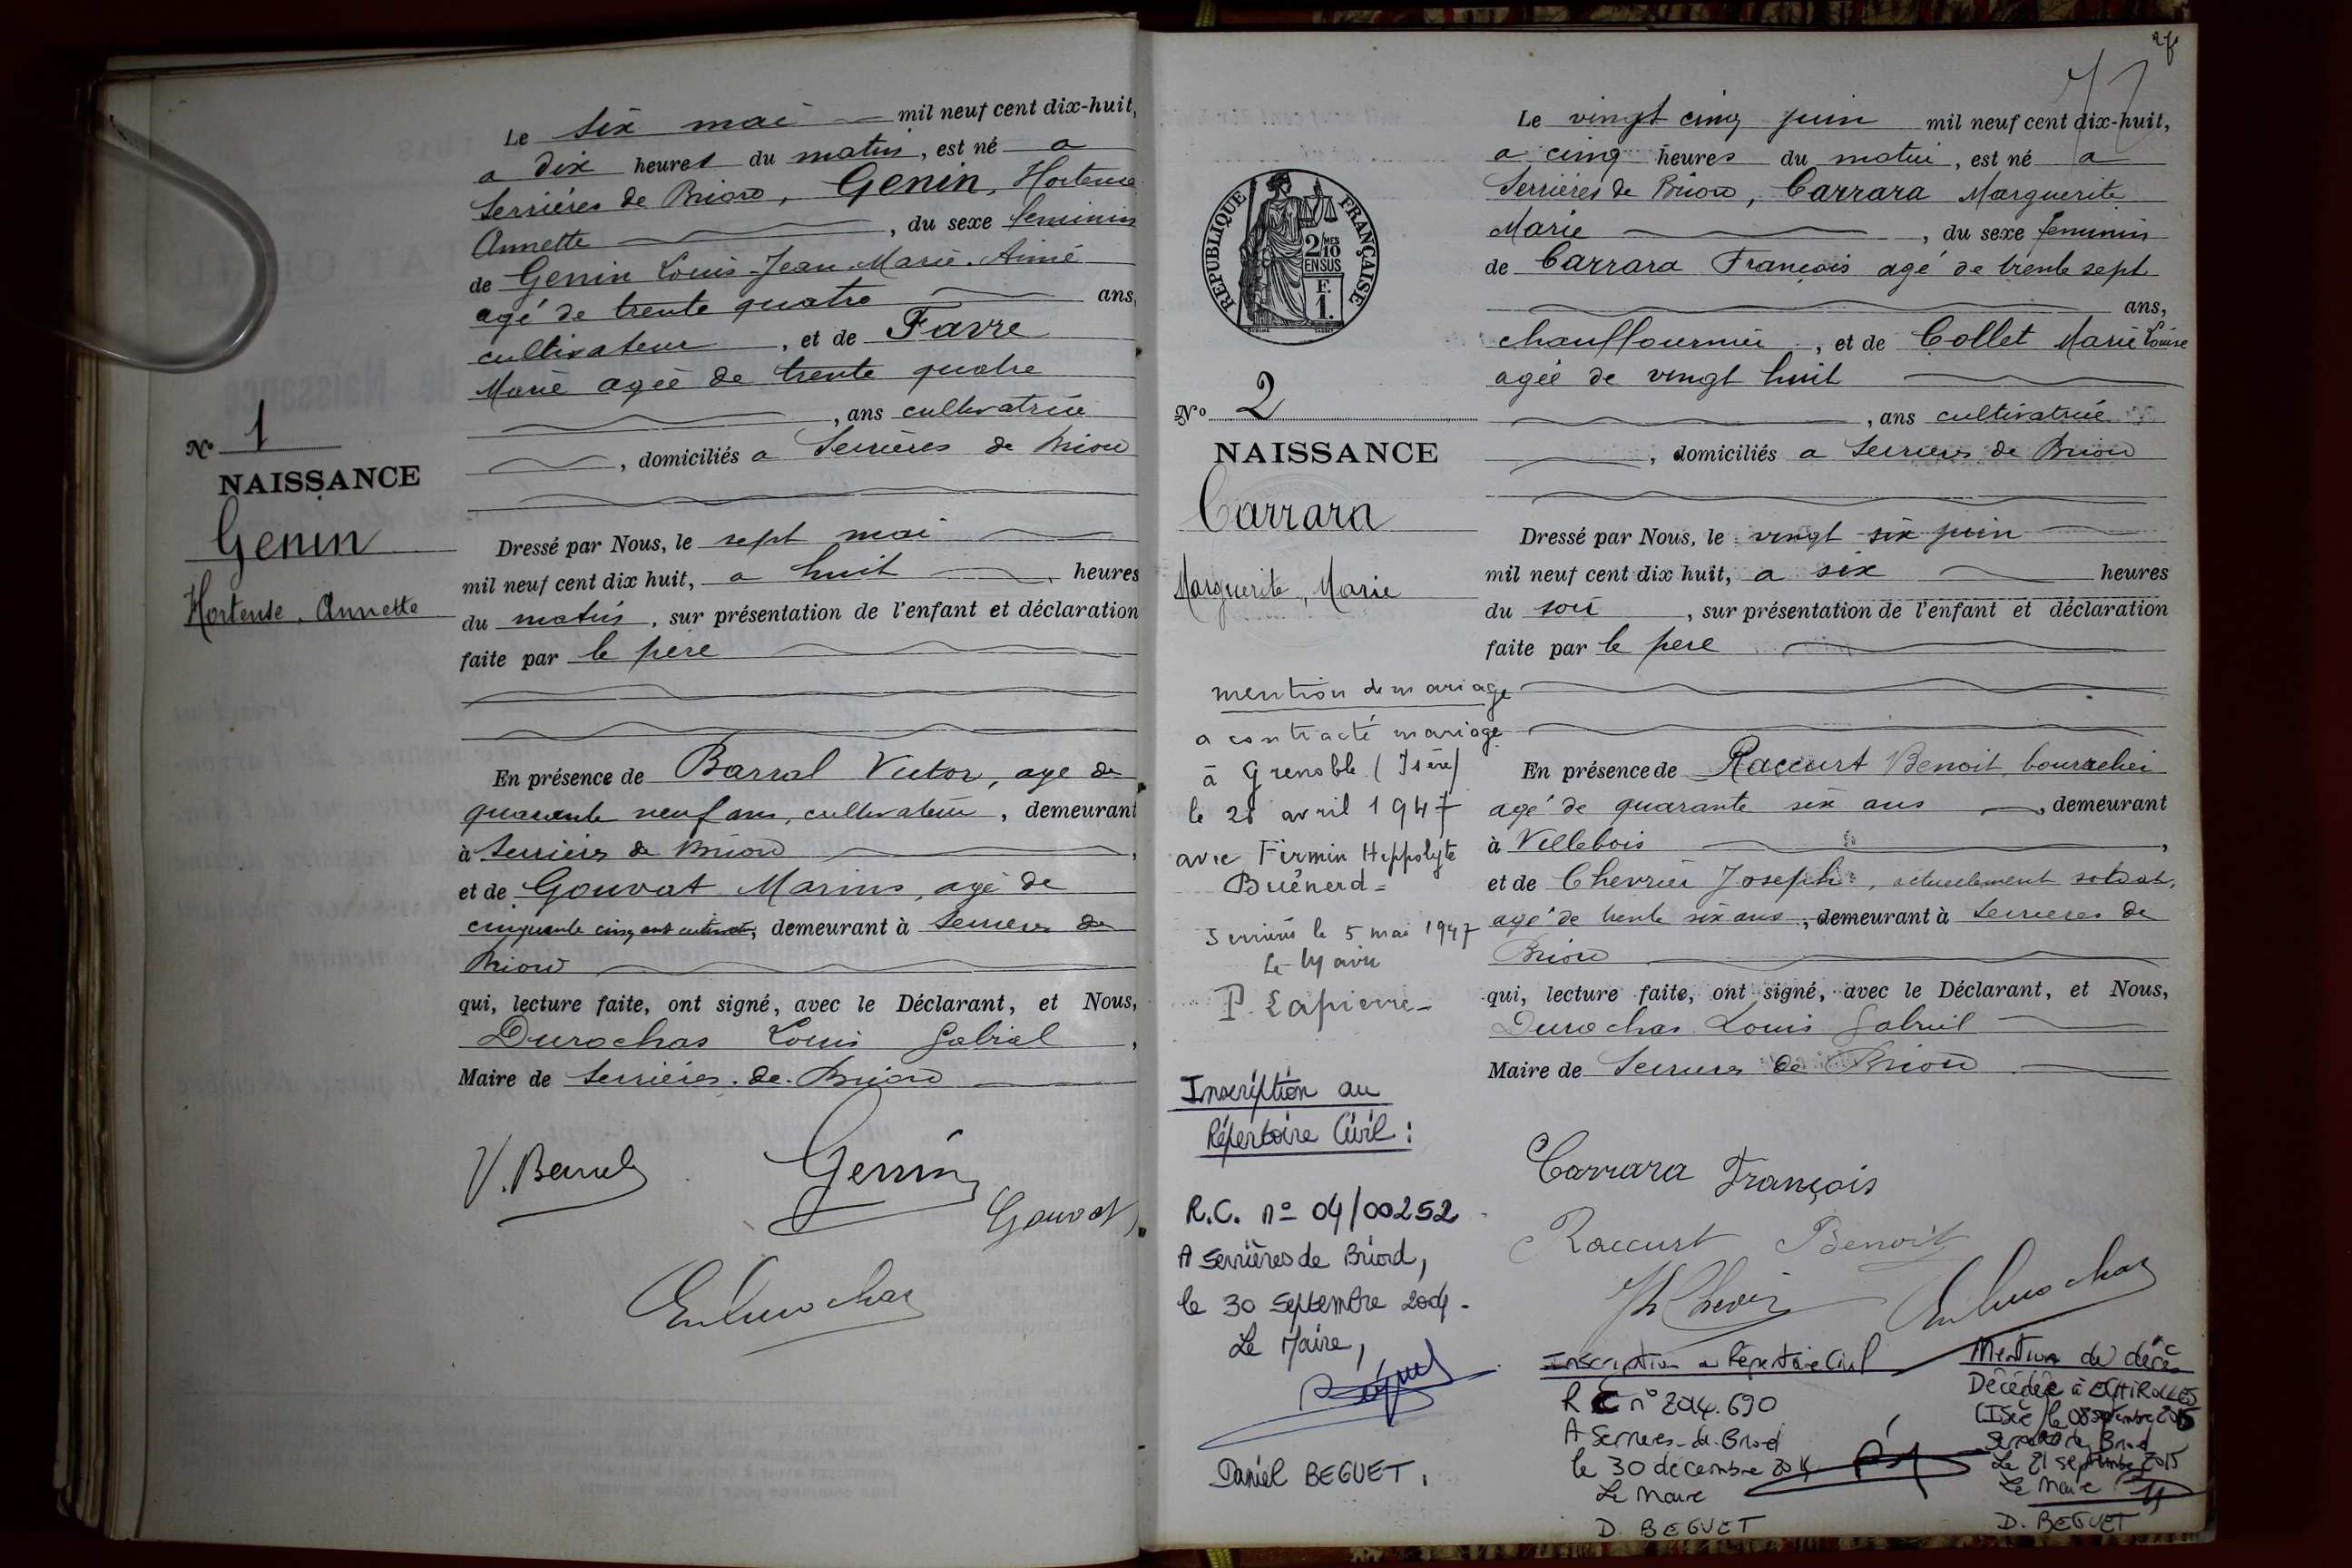 Le six mai mil neuf cent dix-huit,
a dix heures du matin, est né a
Serrières de Briord, Genin, Hortense
Annette , du sexe feminin
de Genin Louis-Jean-Marie-Aimé
agé de trente quatre ans,
cultivateur , et de Favre
Marie agée de trente quatre
, ans cultivatrice
, domiciliés a Serrières de Briord
Nº 1
NAISSANCE
Genin
Hortense, Annette
Dressé par Nous, le sept mai
mil neuf cent dix huit, a huit heures
du matin, sur présentation de l'enfant et déclaration
faite par le père
En présence de Barral Victor, age de
quarante neuf ans, cultivateur, demeurant
à Serrières de Briord ,
et de Gouvat Marius, agé de
cinquante cinq ans cultivat, demeurant à Serrières de
Briord
qui, lecture faite, ont signé, avec le Déclarant, et Nous,
Durochas Louis Gabriel ,
Maire de Serrières de Briord
V. Barral Genin
Gouvat
Durochas
Le vingt cinq juin mil neuf cent dix-huit,
a cinq heures du matin, est né a
Serrières de Briord, Carrara Marguerite
Marie , du sexe feminin
de Carrara François agé de trente sept
ans,
chauffournier , et de Collet Marie Louise
agée de vingt huit
, ans cultivatrice
, domiciliés a Serrières de Briord
RÉPUBLIQUE FRANÇAISE
2/10 MES
EN SUS
F.
1.
Nº 2
NAISSANCE
Carrara
Marguerite, Marie
Dressé par Nous, le vingt six juin
mil neuf cent dix huit, a six heures
du soir , sur présentation de l'enfant et déclaration
faite par le père
En présence de Raccurt Benoit, bourrelier
agé de quarante six ans , demeurant
à Villebois ,
et de Chevrier Joseph, actuellement soldat,
agé de trente six ans, demeurant à Serrières de
Briord
qui, lecture faite, ont signé, avec le Déclarant, et Nous,
Durochas Louis Gabriel
Maire de Serrières de Briord
Carrara François
Raccurt Benoit
Durochas
mention de mariage
a contracté mariage
à Grenoble (Isère)
le 28 avril 1947
avec Firmin Hippolyte
Buénerd =
Serrières le 5 mai 1947
P. Lapierre
Inscription au
Répertoire Civil :
R.C. nº 04/00252
A Serrières de Briord,
le 30 septembre 2004.
Le Maire,
Daniel BEGUET.
Inscription au Répertoire Civil
R C nº 2014.690
A Serrières-de-Briord
le 30 decembre 2014
Le Maire
D. BEGUET
Mention de décès
Décédée à ECHIROLLES
(Isère) le 08 septembre 2015
Serrières de Briord
Le 21 septembre 2015
Le Maire
D. BEGUET